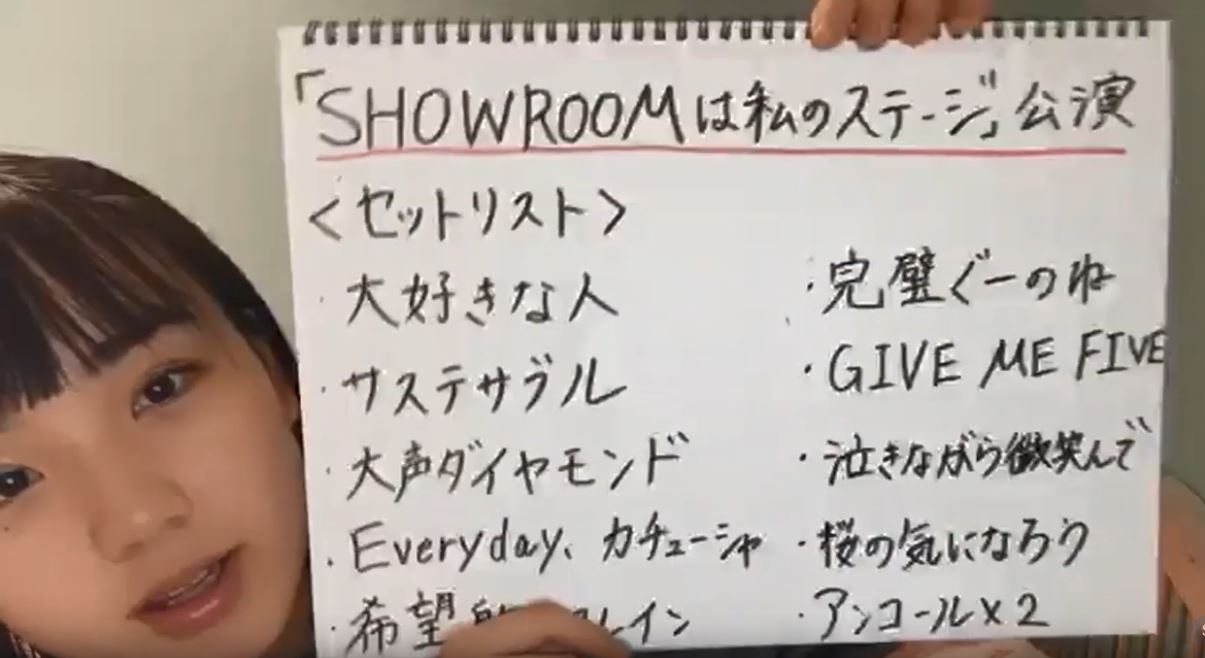 「SHOWROOMは私のステージ」公演
<セットリスト>
・大好きな人
・サステナブル
・大声ダイヤモンド
・Everyday、カチューシャ
・希望 レイン
・完璧ぐーのね
・GIVE ME FIVE
・泣きながら微笑んで
・桜の気になろう
・アンコール×2